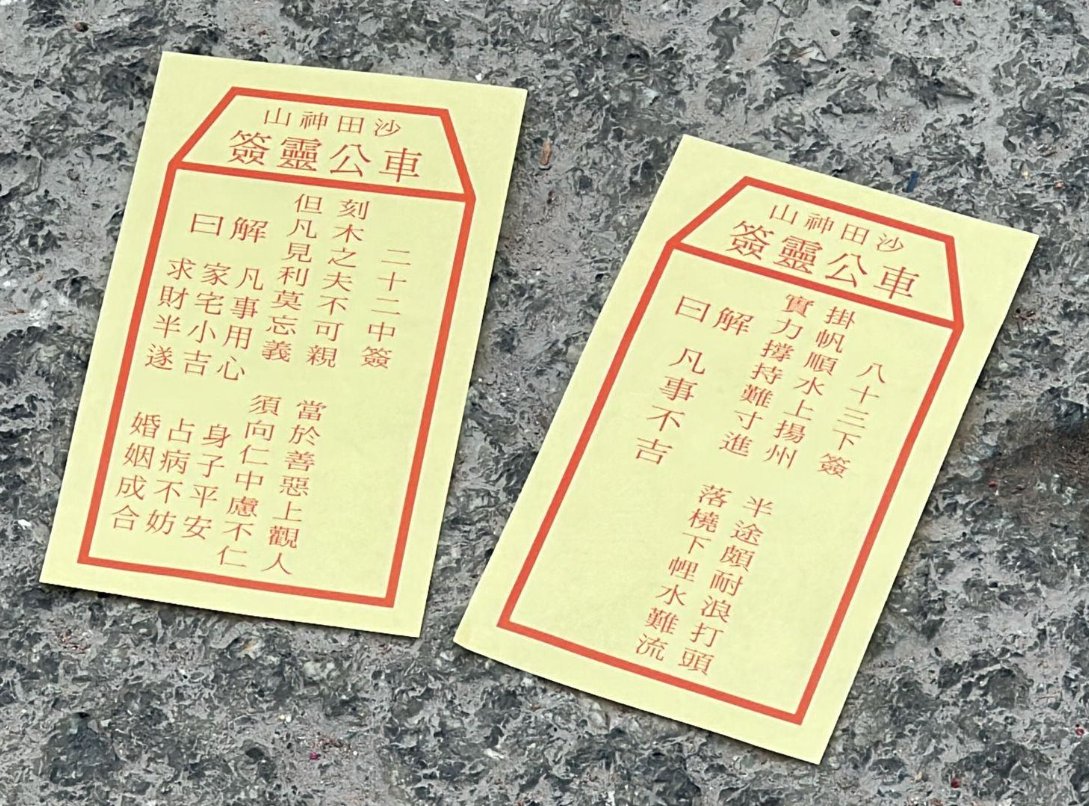 沙田神山
車公靈簽
二十二中簽
刻木之夫不可親 當於善惡上觀人
但凡見利莫忘義 須向仁中慮不仁
解曰
凡事用心 身子平安
家宅小吉 占病不妨
求財半遂 婚姻成合
沙田神山
車公靈簽
八十三下簽
掛帆順水上揚州 半途頗耐浪打頭
實力撐持難寸進 落橈下悝水難流
解曰
凡事不吉